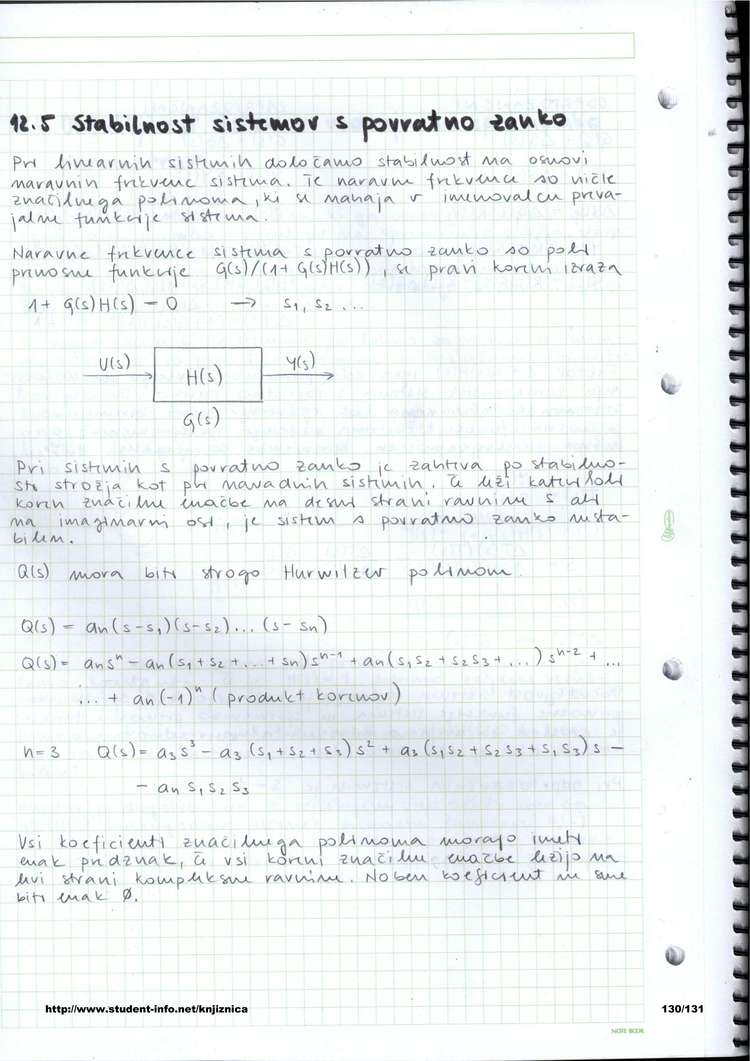 12.5 Stabilnost sistemov s povratno zanko
Pri linearnih sistemih določamo stabilnost na osnovi
naravnih frekvenc sistema. Te naravne frekvence so ničle
značilnega polinoma, ki se nahaja v imenovalcu preva-
jalne funkcije sistema.
Naravne frekvence sistema s povratno zanko so poli
prenosne funkcije G(s)/(1+ G(s)H(s)), se pravi koreni izraza
1+ G(s)H(s) = 0 → s₁, s₂ ...
U(s)
H(s)
Y(s)
G(s)
Pri sistemih s povratno zanko je zahteva po stabilno-
sti strožja kot pri navadnih sistemih. Če leži katerikoli
koren značilne enačbe na desni strani ravnine s ali
na imaginarni osi, je sistem s povratno zanko nesta-
bilen.
Q(s) mora biti strogo Hurwitzev polinom.
Q(s) = an(s-s₁)(s-s₂)... (s- sn)
Q(s) = ansⁿ - an(s₁+s₂+...+sn)sⁿ⁻¹ + an(s₁s₂+s₂s₃+...) sⁿ⁻² + ...
... + an(-1)ⁿ (produkt korenov)
n=3 Q(s) = a₃s³ - a₃ (s₁+s₂+s₃)s² + a₃ (s₁s₂+s₂s₃+s₁s₃)s -
- an s₁s₂s₃
Vsi koeficienti značilnega polinoma morajo imeti
enak predznak, če vsi koreni značilne enačbe ležijo na
levi strani kompleksne ravnine. Noben koeficient ne sme
biti enak 0.
http://www.student-info.net/knjiznica
130/131
NOTE BOOK